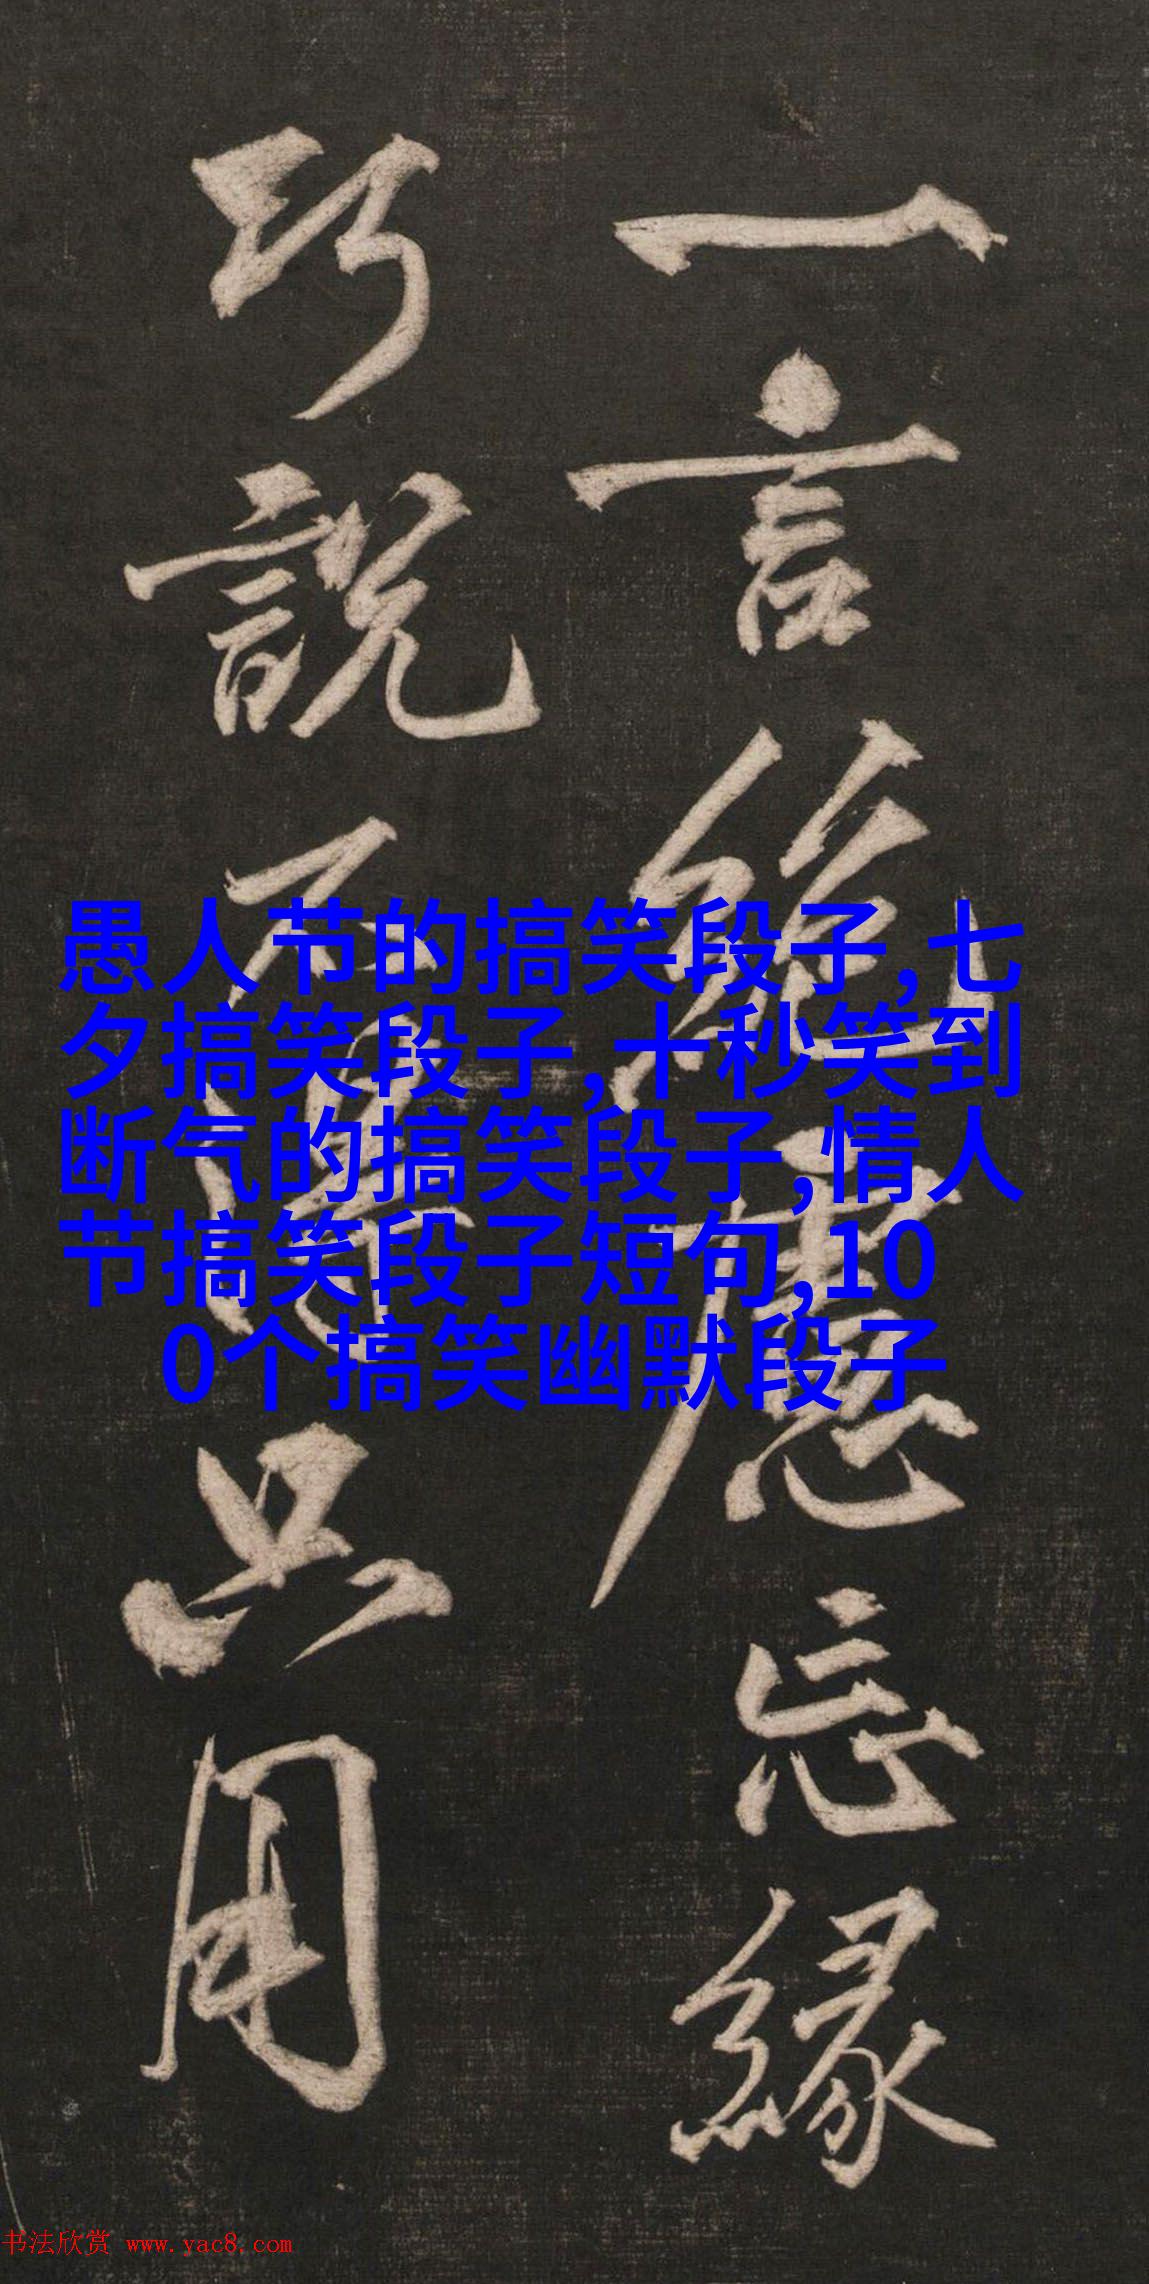 一言絕慮忘緣
巧説不得只用
愚人节的搞笑段子,七
夕搞笑段子,十秒笑到
断气的搞笑段子,情人
节搞笑段子短句,10
0个搞笑幽默段子
书法欣赏 www.yac8.com